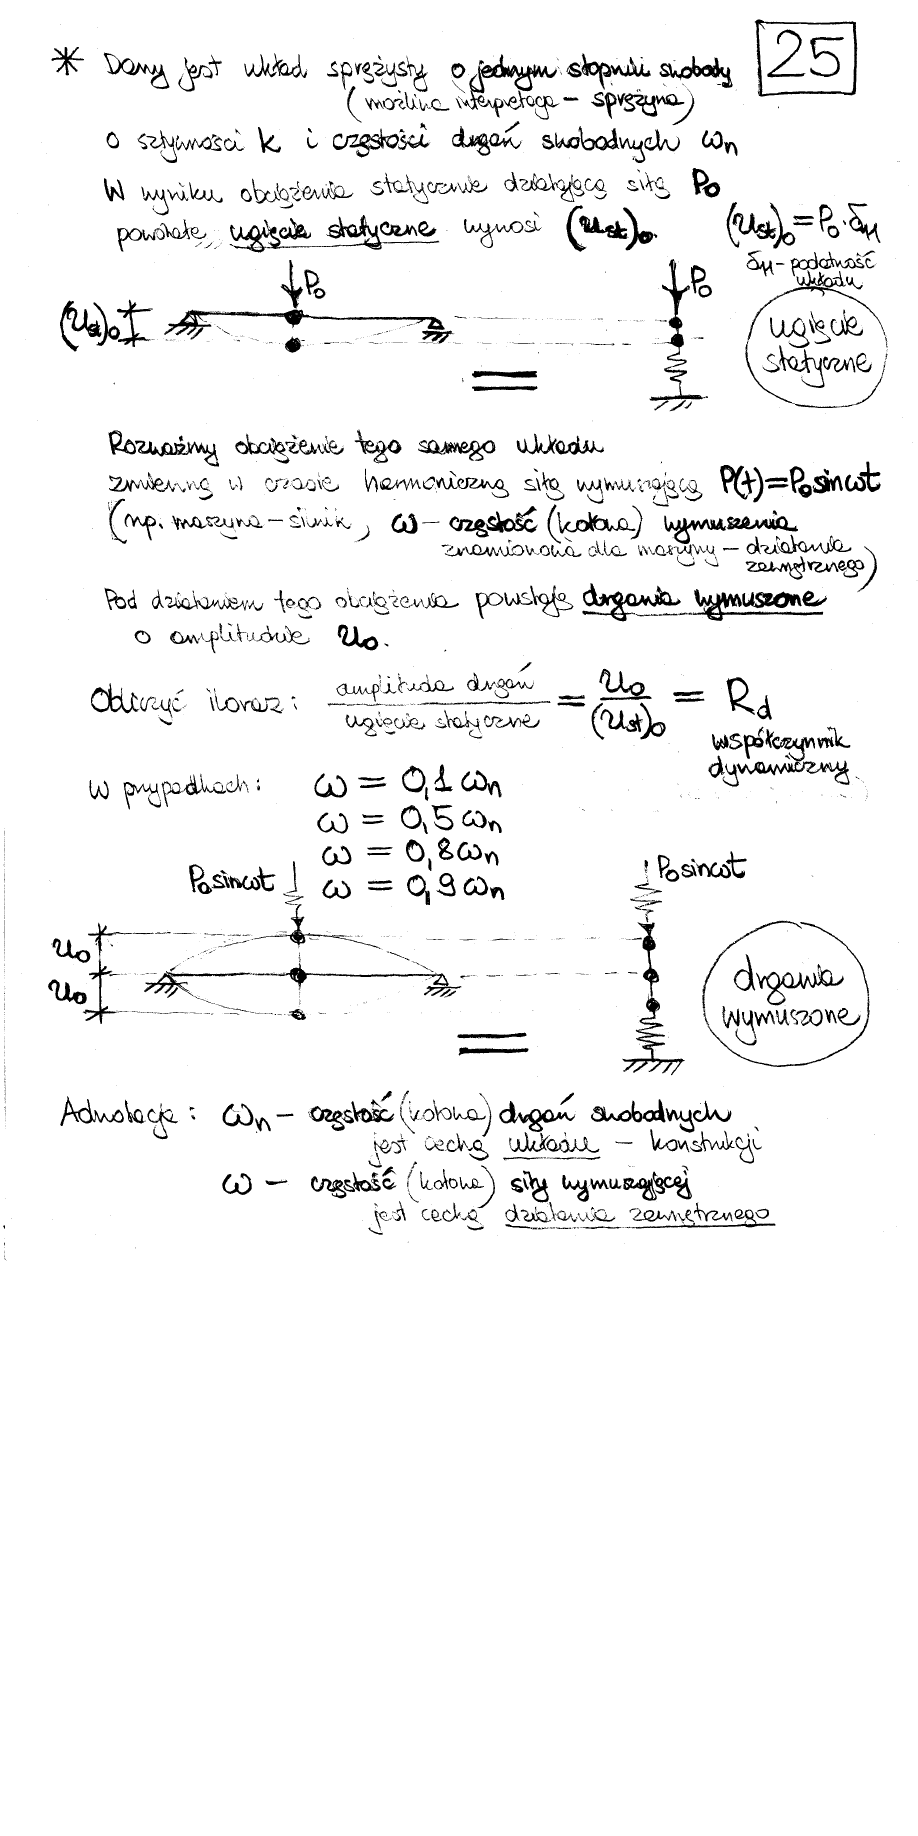 25
* Dany jest układ sprężysty o jednym stopniu swobody
(możliwa interpretacja – sprężyna)
o sztywności k i częstości drgań swobodnych ωn
W wyniku obciążenia statycznie działającą siłą P0
powstałe ugięcie statyczne wynosi (Ust)0.
(Ust)0 = P0·δ11
δ11 – podatność
układu
P0
P0
(Ust)0
ugięcie
statyczne
=
Rozważmy obciążenie tego samego układu
zmienną w czasie harmoniczną siłą wymuszającą P(t)=P0sinωt
(np. maszyna – silnik, ω – częstość (kołowa) wymuszenia
znamionowa dla maszyny – działania
zewnętrznego)
Pod działaniem tego obciążenia powstają drgania wymuszone
o amplitudzie U0.
Obliczyć iloraz: amplituda drgań / ugięcie statyczne = U0 / (Ust)0 = Rd
współczynnik
dynamiczny
w przypadkach: ω = 0,1ωn
ω = 0,5ωn
ω = 0,8ωn
ω = 0,9ωn
P0sinωt
P0sinωt
U0
U0
drgania
wymuszone
=
Adnotacja: ωn – częstość (kołowa) drgań swobodnych
jest cechą układu – konstrukcji
ω – częstość (kołowa) siły wymuszającej
jest cechą działania zewnętrznego